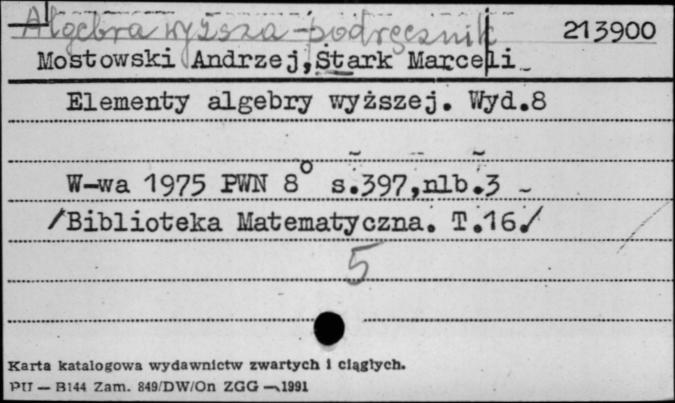 Algebra wyższa - podręcznik 213900
Mostowski Andrzej, Stark Marceli
Elementy algebry wyższej. Wyd.8
W-wa 1975 PWN 8° s.397,nlb.3
/Biblioteka Matematyczna. T.16./
5
Karta katalogowa wydawnictw zwartych i ciągłych.
PU — B144 Zam. 849/DW/On ZGG — 1991